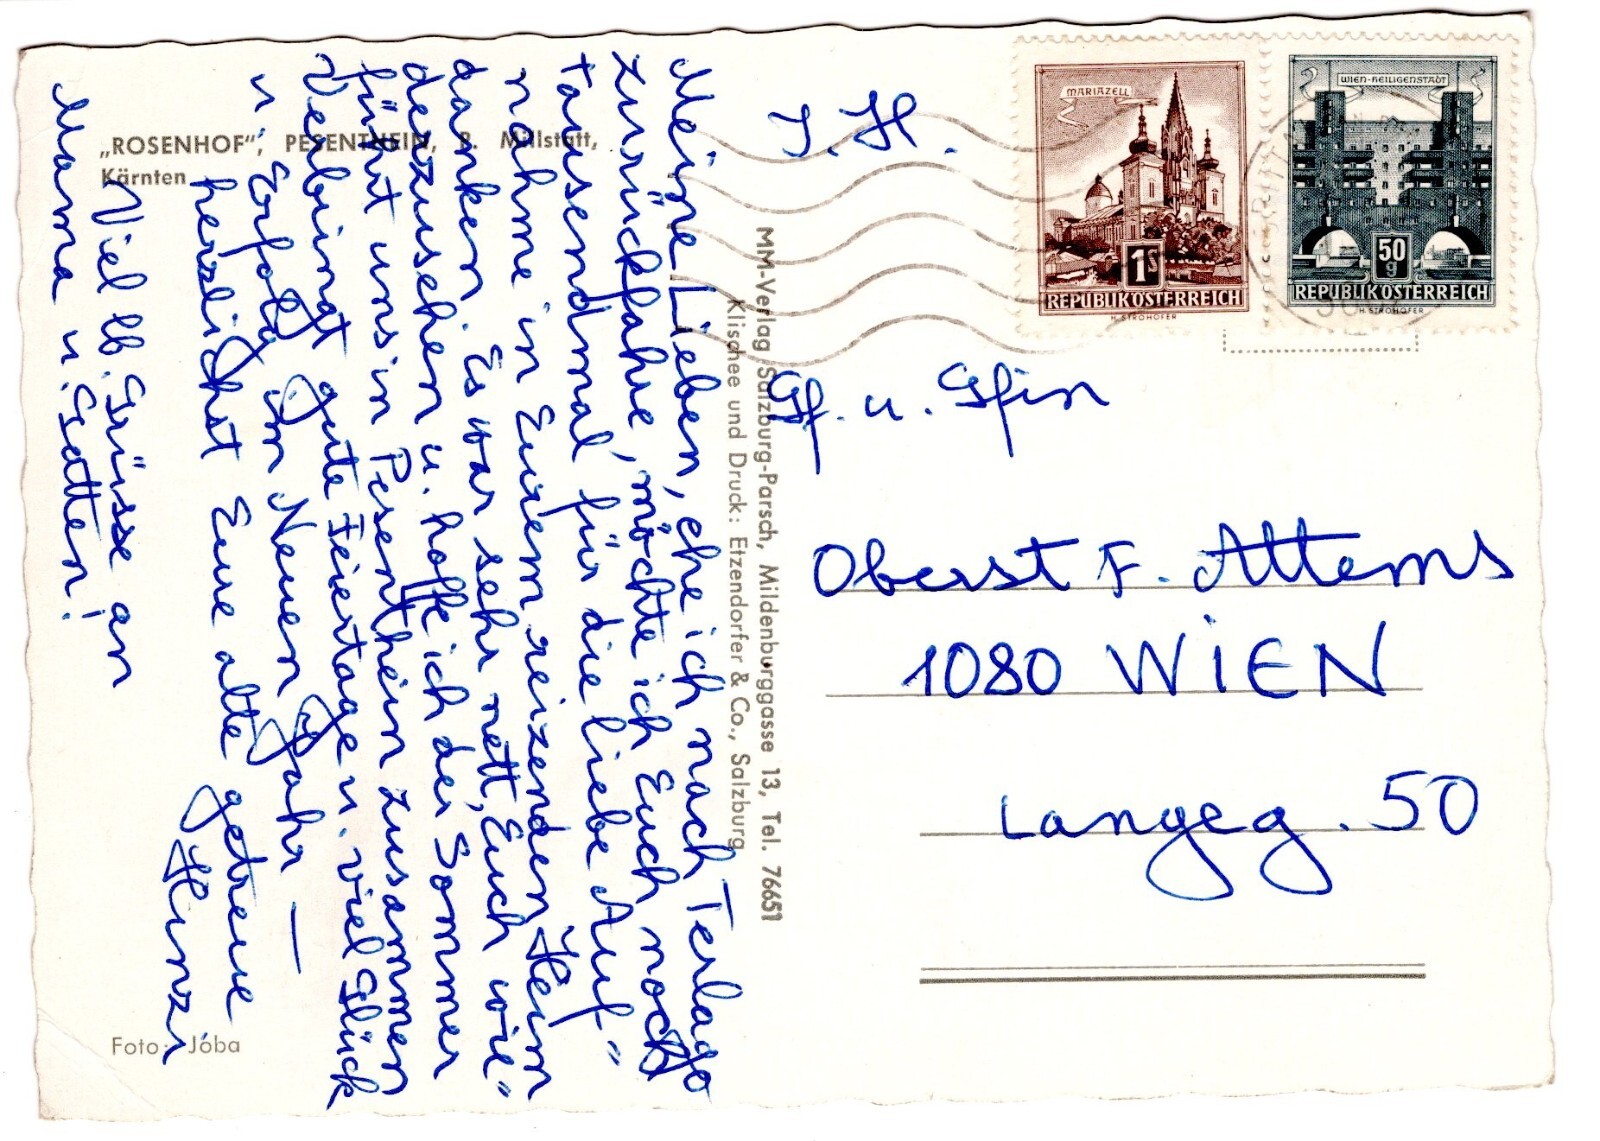 „ROSENHOF“, PESENTHEIN, B. Millstatt,
Kärnten
Meine Lieben, ehe ich nach Terlago
zurückfahre, möchte ich Euch noch
tausendmal für die liebe Auf"
nahme in Eurem reizenden Heim
danken. Es war sehr nett, Euch wie"
derzusehen u. hoffe ich der Sommer
führt uns in Pesenthein zusammen
Verbringt gute Feiertage u. viel Glück
u Erfolg im Neuen Jahr —
herzlichst Eure alte getreue
Hunzi
Viel lb. Grüsse an
Mama u. Gatten!
Foto: Jóba
MM-Verlag Salzburg-Parsch, Mildenburggasse 13, Tel. 76651
Klischee und Druck: Etzendorfer & Co., Salzburg
MARIAZELL
1S
REPUBLIK ÖSTERREICH
H. STROHOFER
WIEN-HEILIGENSTADT
50
g
REPUBLIK ÖSTERREICH
H. STROHOFER
I. H.
Gf. u. Gfin
Oberst F. Attems
1080 WIEN
Langeg. 50